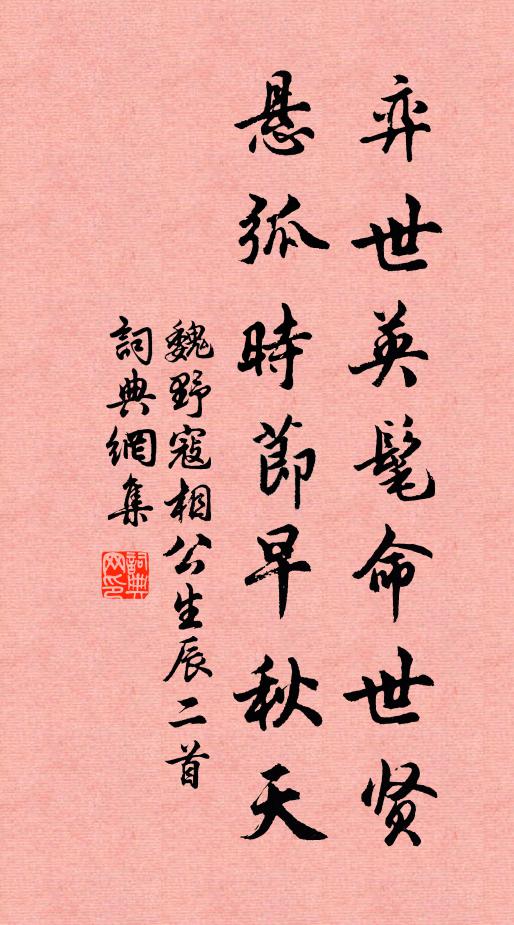 弈世英髦命世贤
悬弧時節早秋天
魏野寇相公生辰二首
詞典網集
詞典網印